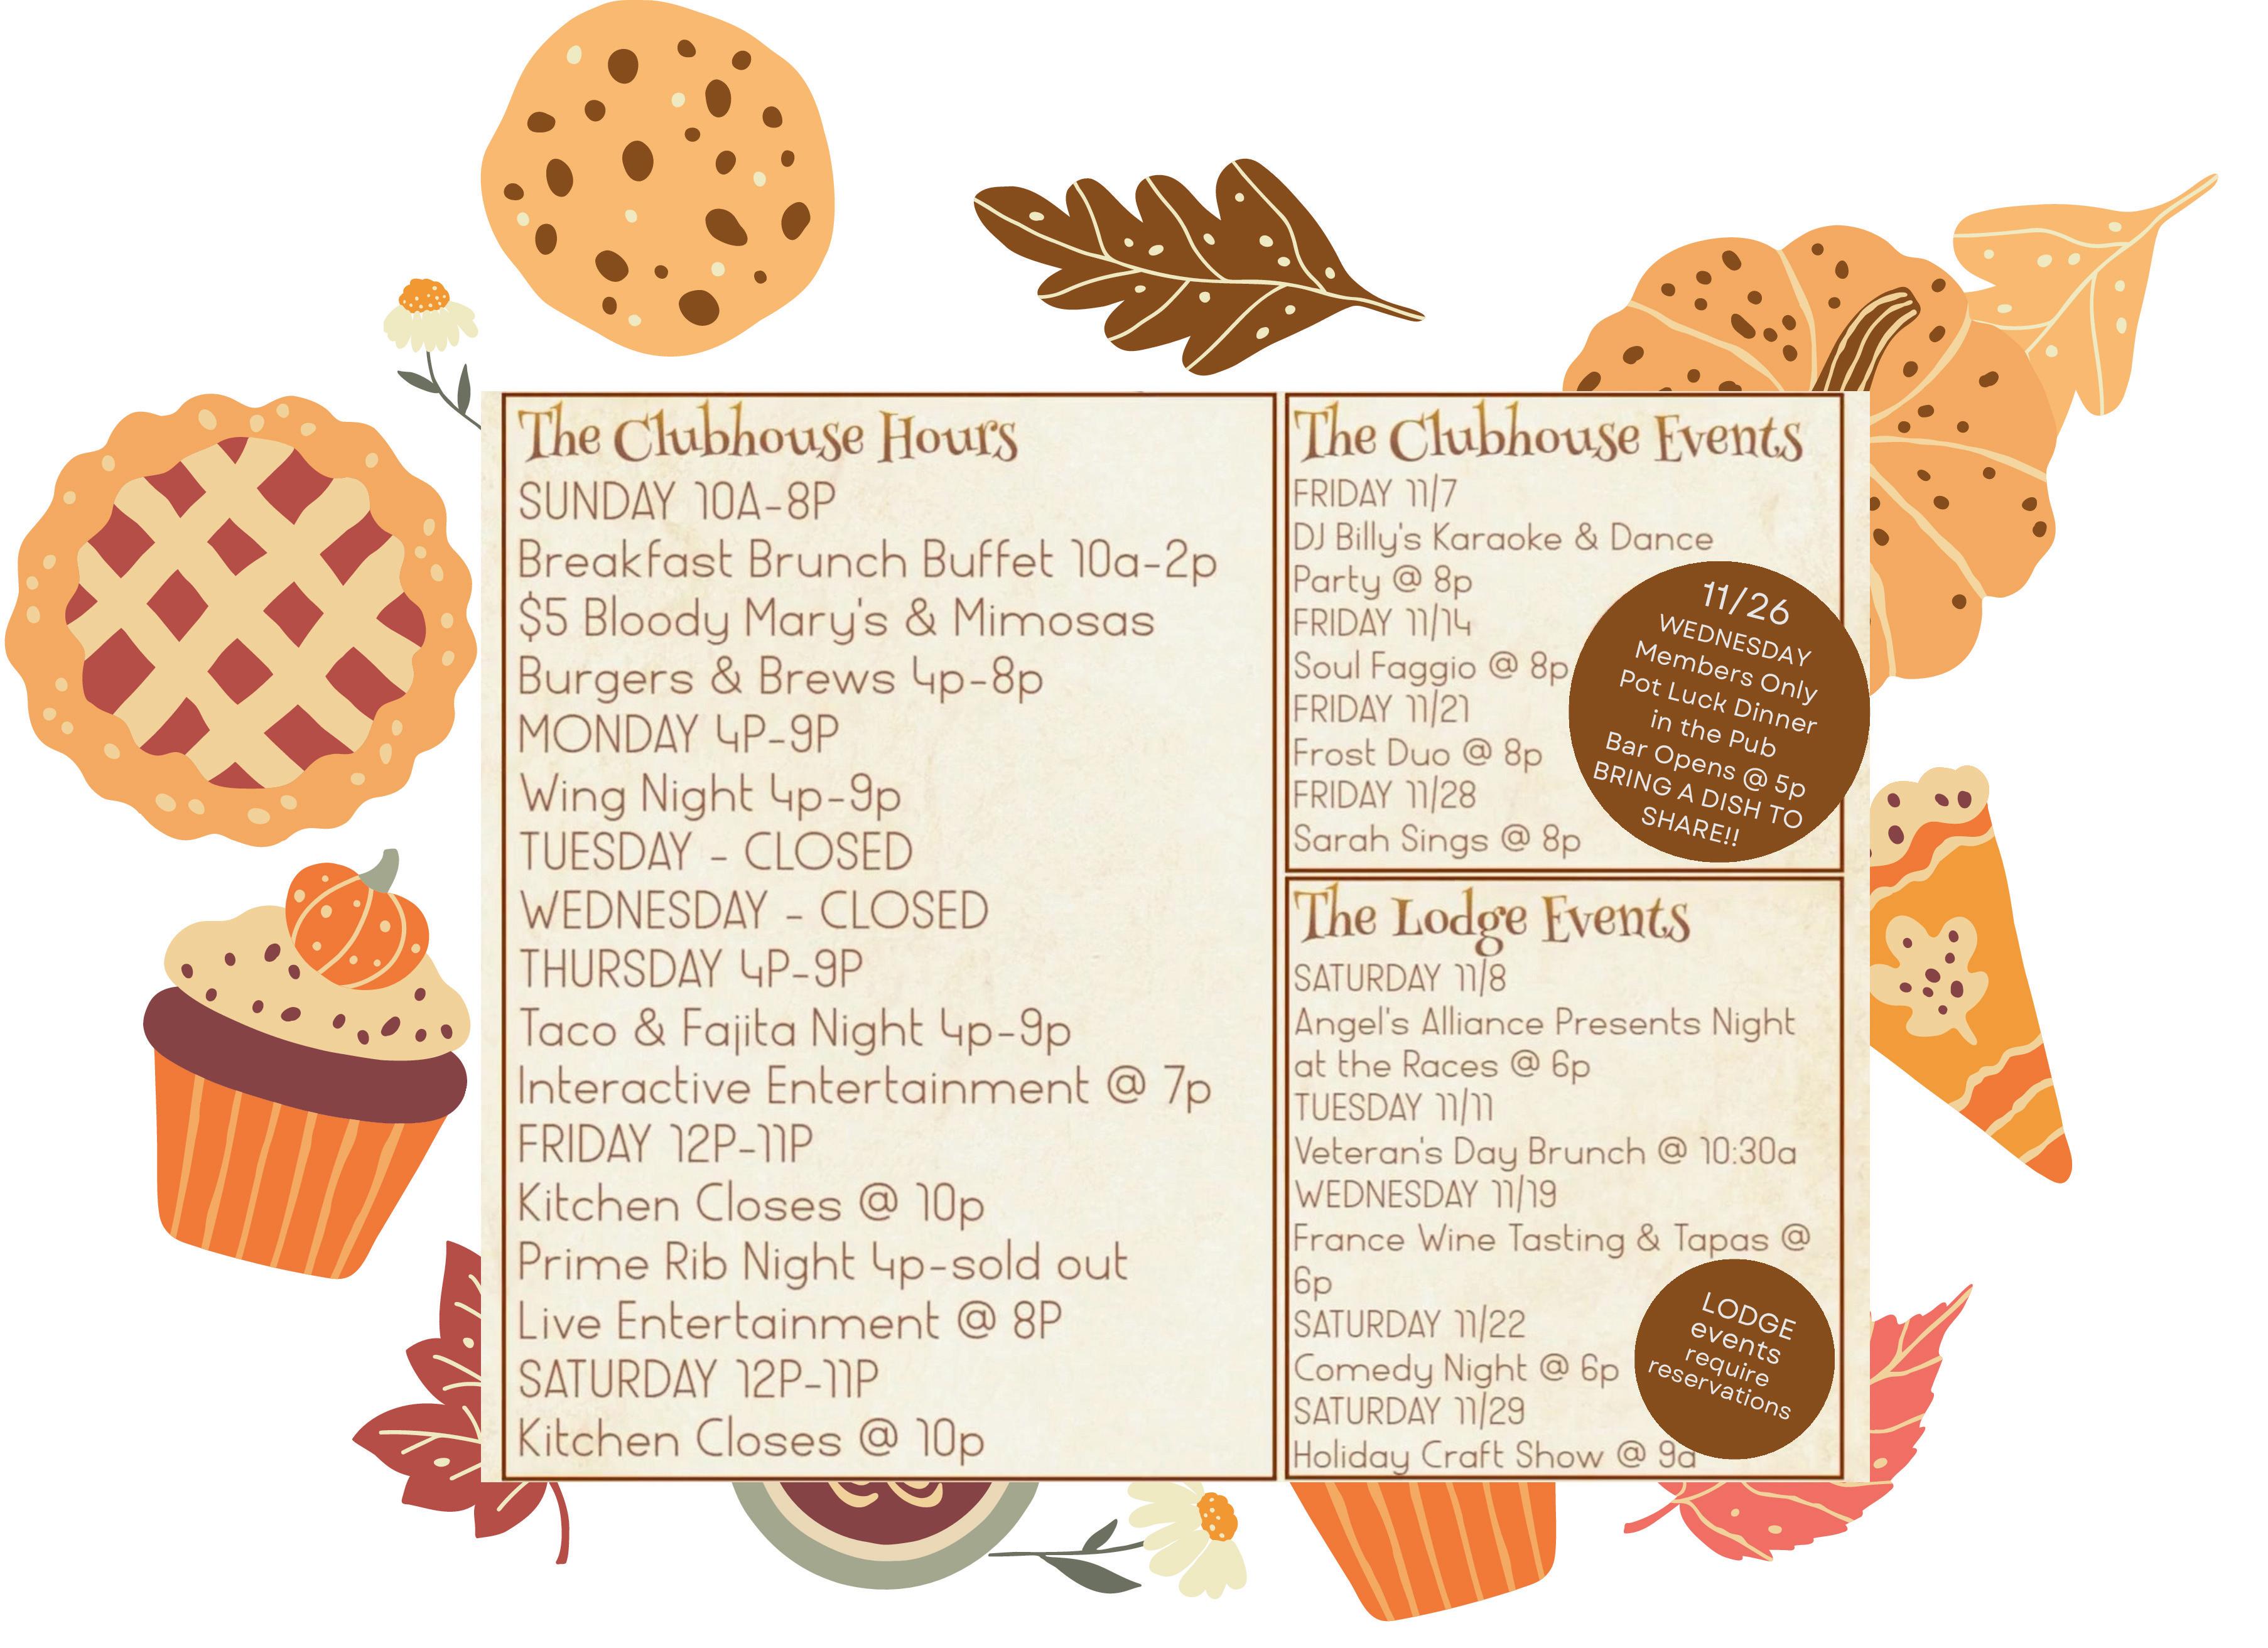 The Clubhouse Hours
SUNDAY 10A-8P
Breakfast Brunch Buffet 10a-2p
$5 Bloody Mary's & Mimosas
Burgers & Brews 4p-8p
MONDAY 4P-9P
Wing Night 4p-9p
TUESDAY - CLOSED
WEDNESDAY - CLOSED
THURSDAY 4P-9P
Taco & Fajita Night 4p-9p
Interactive Entertainment @ 7p
FRIDAY 12P-11P
Kitchen Closes @ 10p
Prime Rib Night 4p-sold out
Live Entertainment @ 8P
SATURDAY 12P-11P
Kitchen Closes @ 10p
The Clubhouse Events
FRIDAY 11/7
DJ Billy's Karaoke & Dance
Party @ 8p
FRIDAY 11/14
Soul Faggio @ 8p
FRIDAY 11/21
Frost Duo @ 8p
FRIDAY 11/28
Sarah Sings @ 8p
11/26
WEDNESDAY
Members Only
Pot Luck Dinner
in the Pub
Bar Opens @ 5p
BRING A DISH TO
SHARE!!
The Lodge Events
SATURDAY 11/8
Angel's Alliance Presents Night
at the Races @ 6p
TUESDAY 11/11
Veteran's Day Brunch @ 10:30a
WEDNESDAY 11/19
France Wine Tasting & Tapas @
6p
SATURDAY 11/22
Comedy Night @ 6p
SATURDAY 11/29
Holiday Craft Show @ 9a
LODGE
events
require
reservations